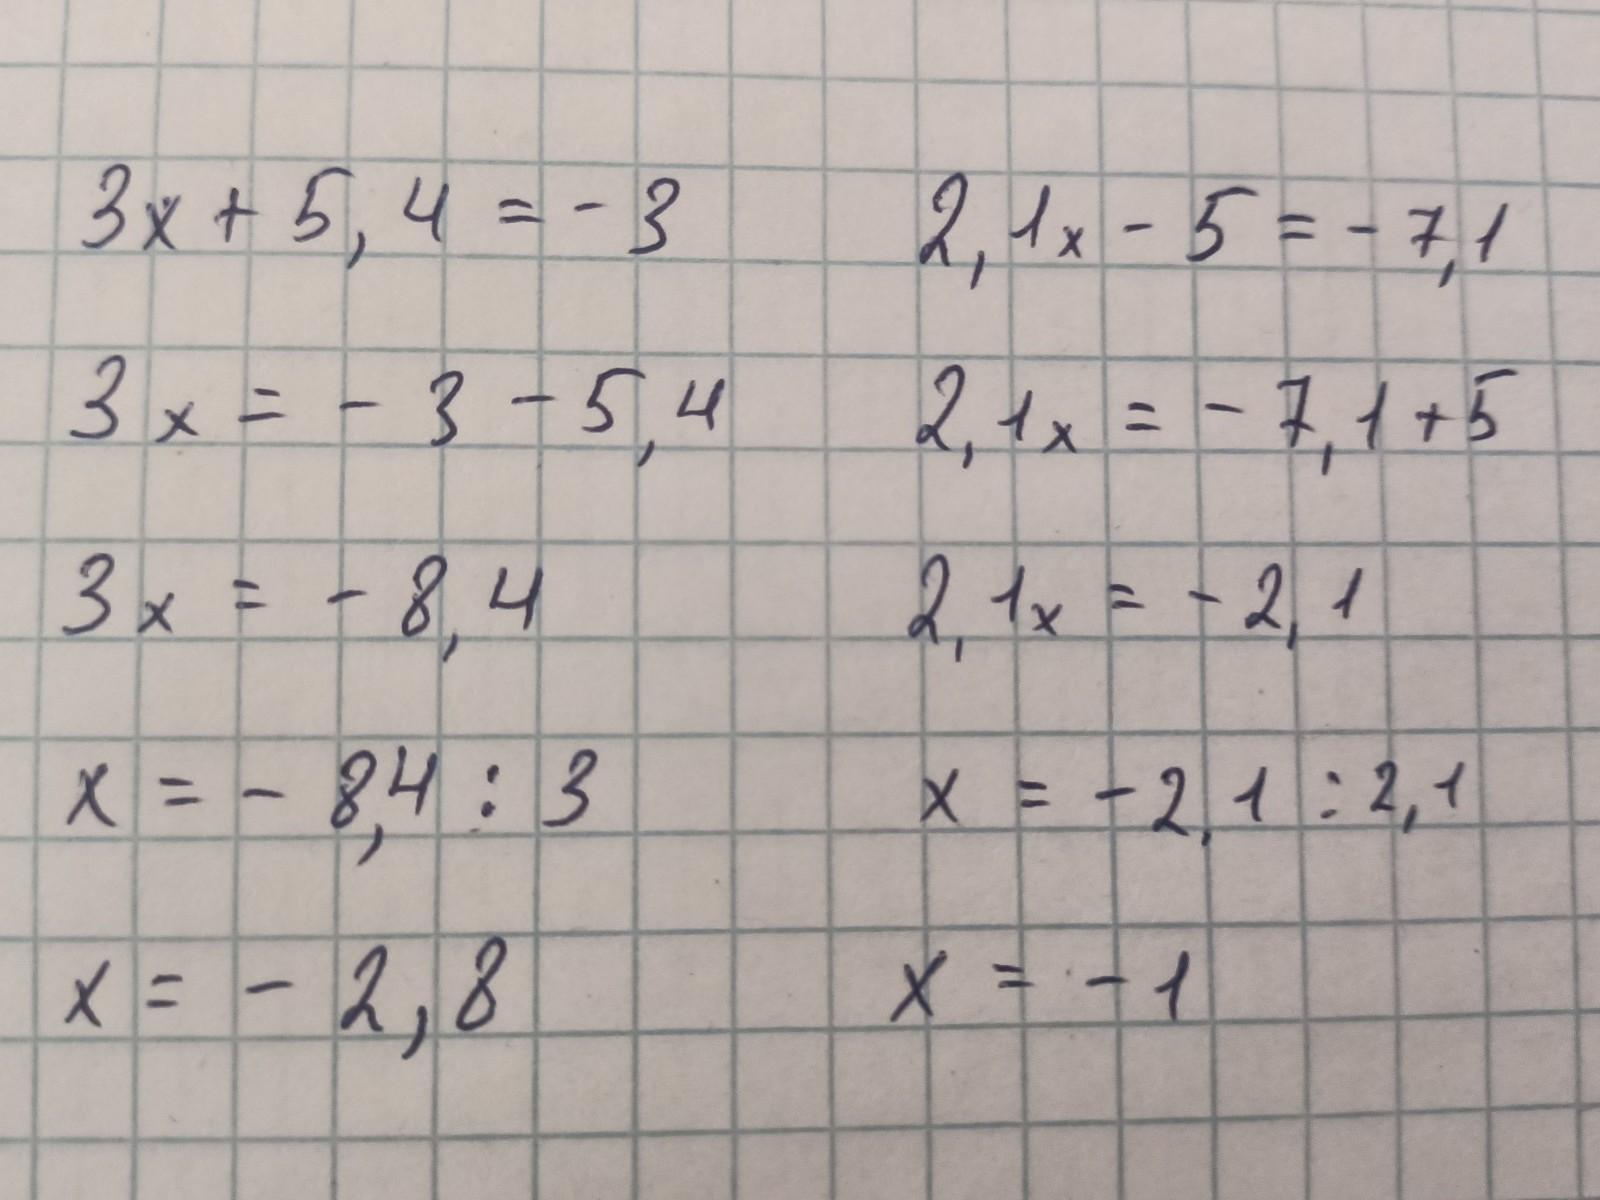 3x + 5,4 = - 3
3x = - 3 - 5,4
3x = - 8,4
x = - 8,4 : 3
x = - 2,8
2,1x - 5 = - 7,1
2,1x = - 7,1 + 5
2,1x = - 2,1
x = - 2,1 : 2,1
x = - 1